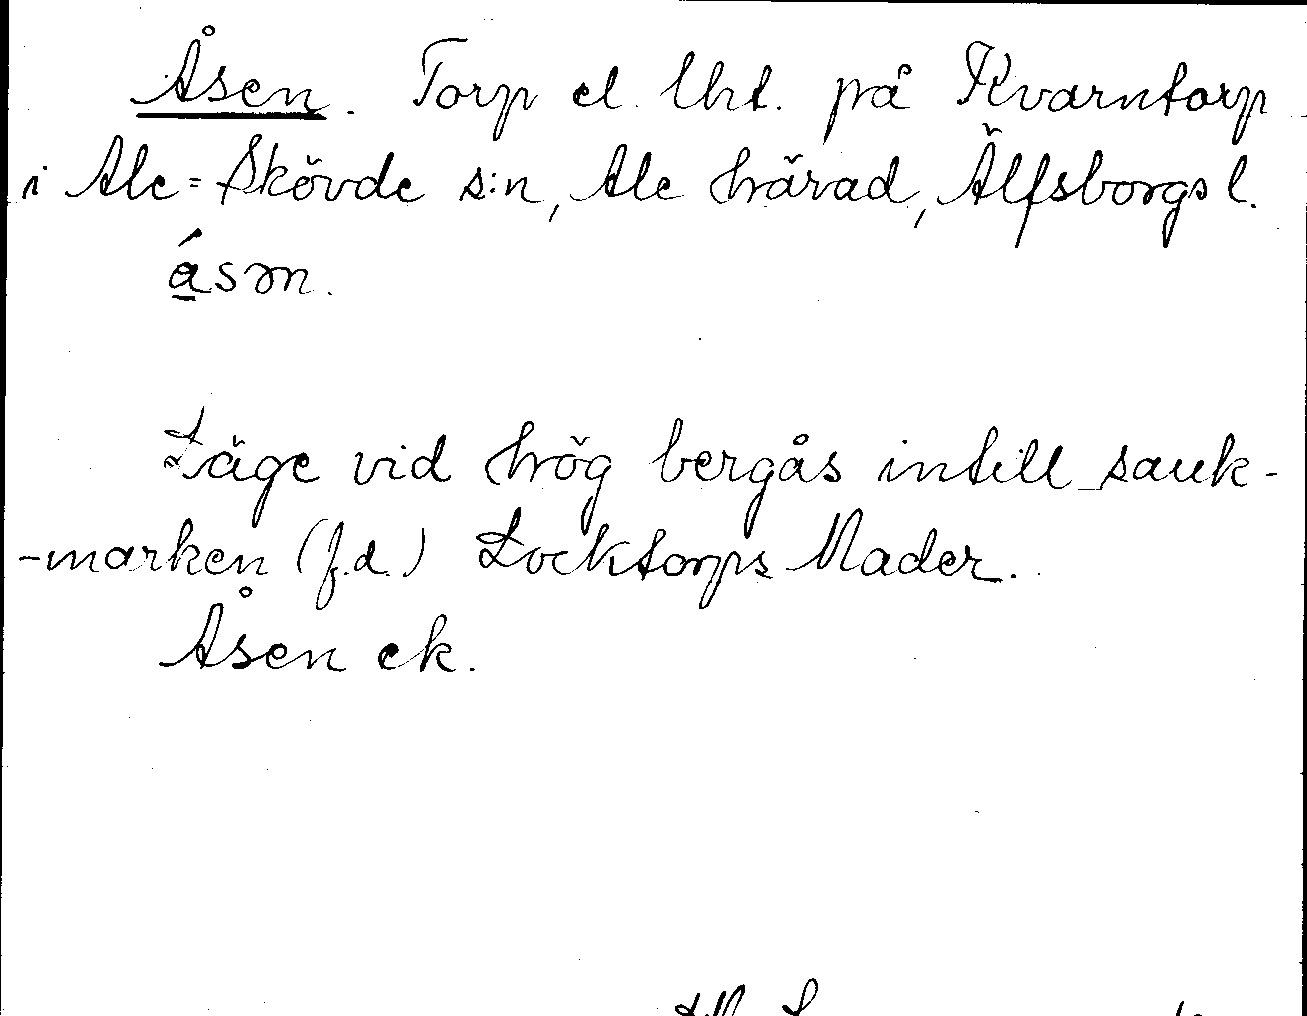 Åsen. Torp el. lht. på Kvarntorp
i Ale=Skövde s:n, Ale härad, Älfsborgs l.
ásən.
Läge vid hög bergås intill sank-
-marken (f.d.) Locktorps Mader.
Åsen ek.